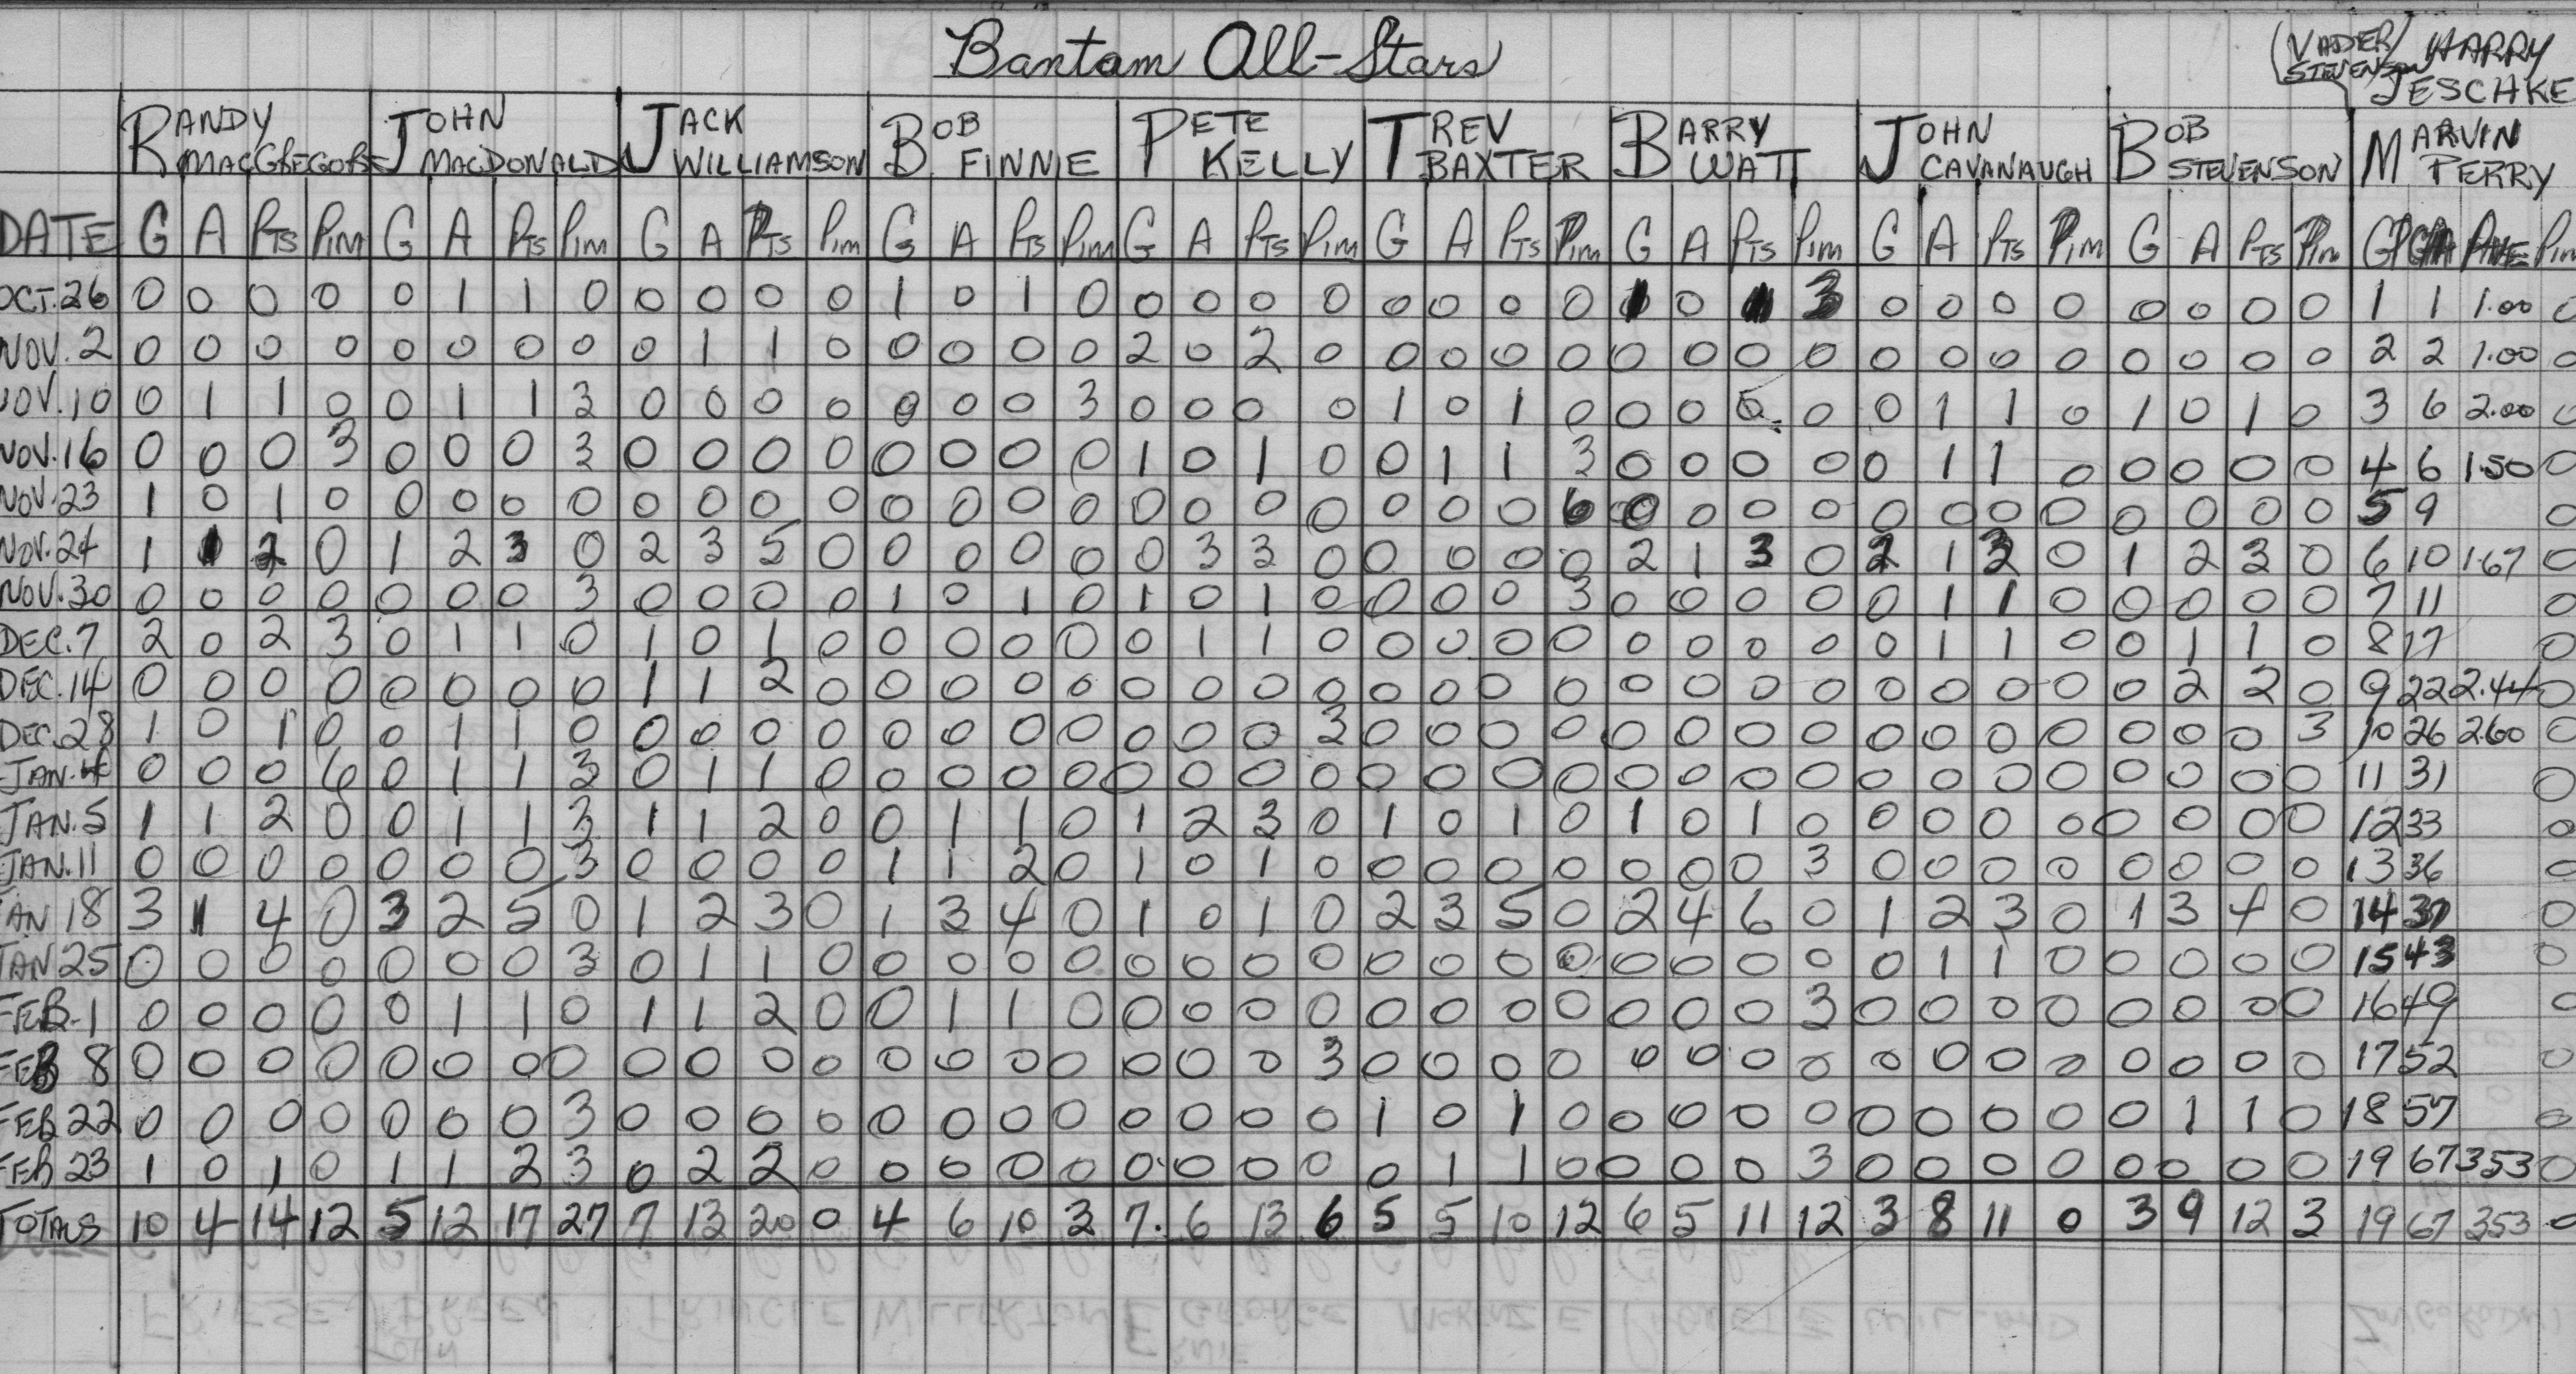 Bantam All-Stars
(VADER/ HARRY
STEVENSON JESCHKE
RANDY JOHN JACK BOB PETE TREV BARRY JOHN BOB MARVIN
MACGREGOR MACDONALD WILLIAMSON FINNIE KELLY BAXTER WATT CAVANAUGH STEVENSON PERRY
DATE G A PTS PIM G A PTS PIM G A PTS PIM G A PTS PIM G A PTS PIM G A PTS PIM G A PTS PIM G A PTS PIM G A PTS PIM GP GA AVE PIM
OCT. 26 0 0 0 0 0 1 1 0 0 0 0 0 1 0 1 0 0 0 0 0 0 0 0 0 0 3 0 0 0 0 0 0 0 0 1 1 1.00 0
NOV. 2 0 0 0 0 0 0 0 0 0 1 1 0 0 0 0 0 2 0 2 0 0 0 0 0 0 0 0 0 0 0 0 0 0 0 0 0 2 2 1.00 0
NOV. 10 0 1 1 0 0 1 1 3 0 0 0 0 0 0 0 3 0 0 0 0 1 0 1 0 0 0 0 0 0 1 1 0 1 0 1 0 3 6 2.00 0
NOV. 16 0 0 0 3 0 0 0 3 0 0 0 0 0 0 0 0 1 0 1 0 0 1 1 3 0 0 0 0 0 1 1 0 0 0 0 0 4 6 1.50 0
NOV. 23 1 0 1 0 0 0 0 0 0 0 0 0 0 0 0 0 0 0 0 0 0 0 0 6 0 0 0 0 0 0 0 0 0 0 0 0 5 9 0
NOV. 24 1 1 2 0 1 2 3 0 2 3 5 0 0 0 0 0 0 3 3 0 0 0 0 0 2 1 3 0 2 1 3 0 1 2 3 0 6 10 1.67 0
NOV. 30 0 0 0 0 0 0 0 3 0 0 0 0 1 0 1 0 1 0 1 0 0 0 0 3 0 0 0 0 0 1 1 0 0 0 0 0 7 11 0
DEC. 7 2 0 2 3 0 1 1 0 1 0 1 0 0 0 0 0 0 1 1 0 0 0 0 0 0 0 0 0 0 1 1 0 0 1 1 0 8 17 0
DEC. 14 0 0 0 0 0 0 0 0 1 1 2 0 0 0 0 0 0 0 0 0 0 0 0 0 0 0 0 0 0 0 0 0 0 2 2 0 9 22 2.44 0
DEC. 28 1 0 1 0 0 1 1 0 0 0 0 0 0 0 0 0 0 0 0 3 0 0 0 0 0 0 0 0 0 0 0 0 0 0 0 3 10 26 2.60 0
JAN. 4 0 0 0 6 0 1 1 3 0 1 1 0 0 0 0 0 0 0 0 0 0 0 0 0 0 0 0 0 0 0 0 0 0 0 0 0 11 31 0
JAN. 5 1 1 2 0 0 1 1 3 1 1 2 0 0 1 1 0 1 2 3 0 1 0 1 0 1 0 1 0 0 0 0 0 0 0 0 0 12 33 0
JAN. 11 0 0 0 0 0 0 0 3 0 0 0 0 1 1 2 0 1 0 1 0 0 0 0 0 0 0 0 3 0 0 0 0 0 0 0 0 13 36 0
JAN 18 3 1 4 0 3 2 5 0 1 2 3 0 1 3 4 0 1 0 1 0 2 3 5 0 2 4 6 0 1 2 3 0 1 3 4 0 14 37 0
JAN 25 0 0 0 0 0 0 0 3 0 1 1 0 0 0 0 0 0 0 0 0 0 0 0 0 0 0 0 0 0 1 1 0 0 0 0 0 15 43 0
FEB. 1 0 0 0 0 0 1 1 0 1 1 2 0 0 1 1 0 0 0 0 0 0 0 0 0 0 0 0 3 0 0 0 0 0 0 0 0 16 49 0
FEB 8 0 0 0 0 0 0 0 0 0 0 0 0 0 0 0 0 0 0 0 3 0 0 0 0 0 0 0 0 0 0 0 0 0 0 0 0 17 52 0
FEB 22 0 0 0 0 0 0 0 3 0 0 0 0 0 0 0 0 0 0 0 0 1 0 1 0 0 0 0 0 0 0 0 0 0 1 1 0 18 57 0
FEB 23 1 0 1 0 1 1 2 3 0 2 2 0 0 0 0 0 0 0 0 0 0 1 1 0 0 0 0 3 0 0 0 0 0 0 0 0 19 67 353 0
TOTALS 10 4 14 12 5 12 17 27 7 13 20 0 4 6 10 3 7. 6 13 6 5 5 10 12 6 5 11 12 3 8 11 0 3 9 12 3 19 67 353 0